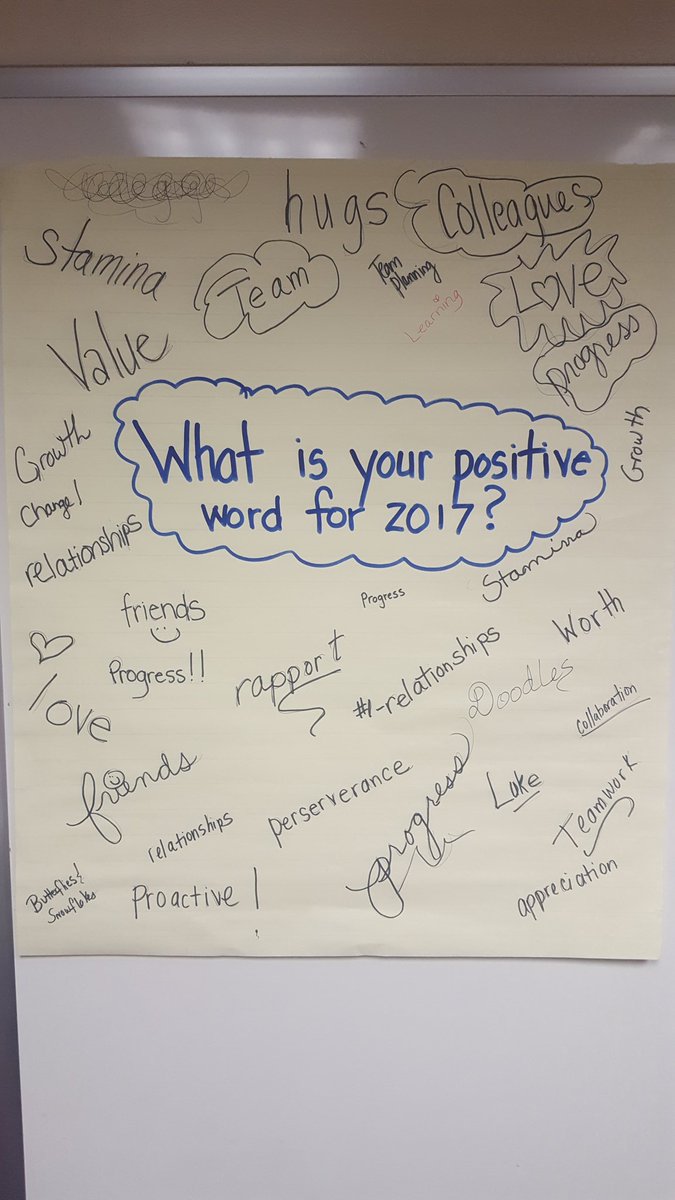 hugs
Colleagues
Stamina
Team
Team
Planning
Learning
LOVE
progress
Value
Growth
Growth
Change!
What is your positive
word for 2017?
relationships
Stamina
friends
Progress
Progress!!
rapport
#1-relationships
Worth
Doodles
collaboration
love
friends
relationships
perserverance
progress
Lake
Teamwork
Butterflies &
Snowflakes
Proactive!
appreciation